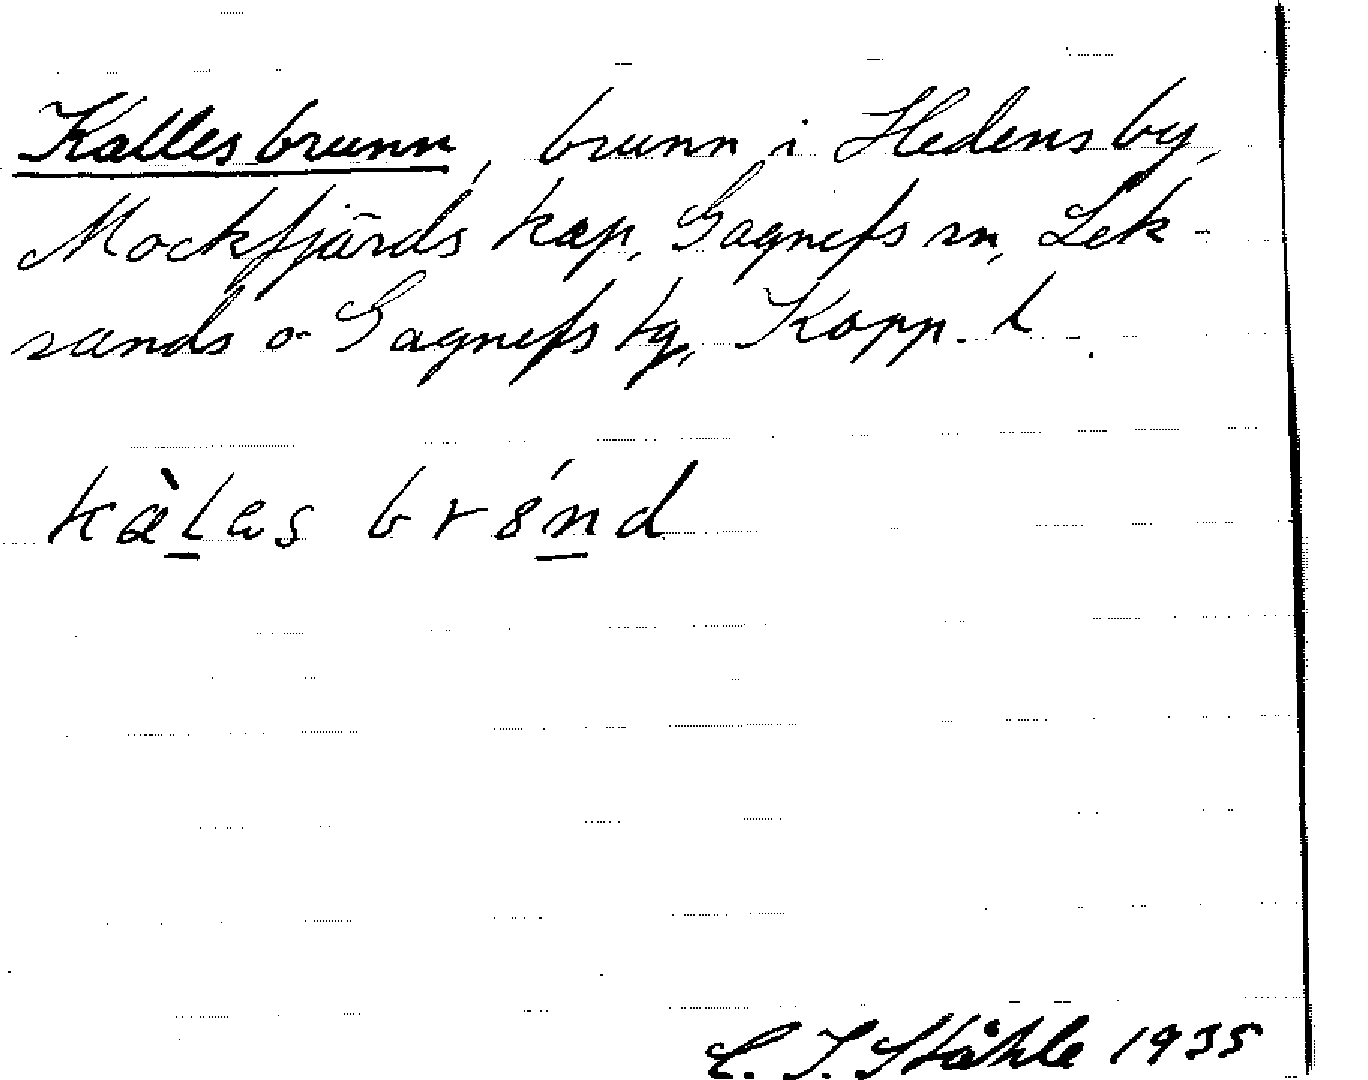 Kallesbrunn, brunn i Hedens by,
Mockfjärds kap, Gagnefs sn, Lek-
sands o Gagnefs tg, Kopp. l.
kæ̀l̲as brǿn̲d
C. I. Ståhle 1935